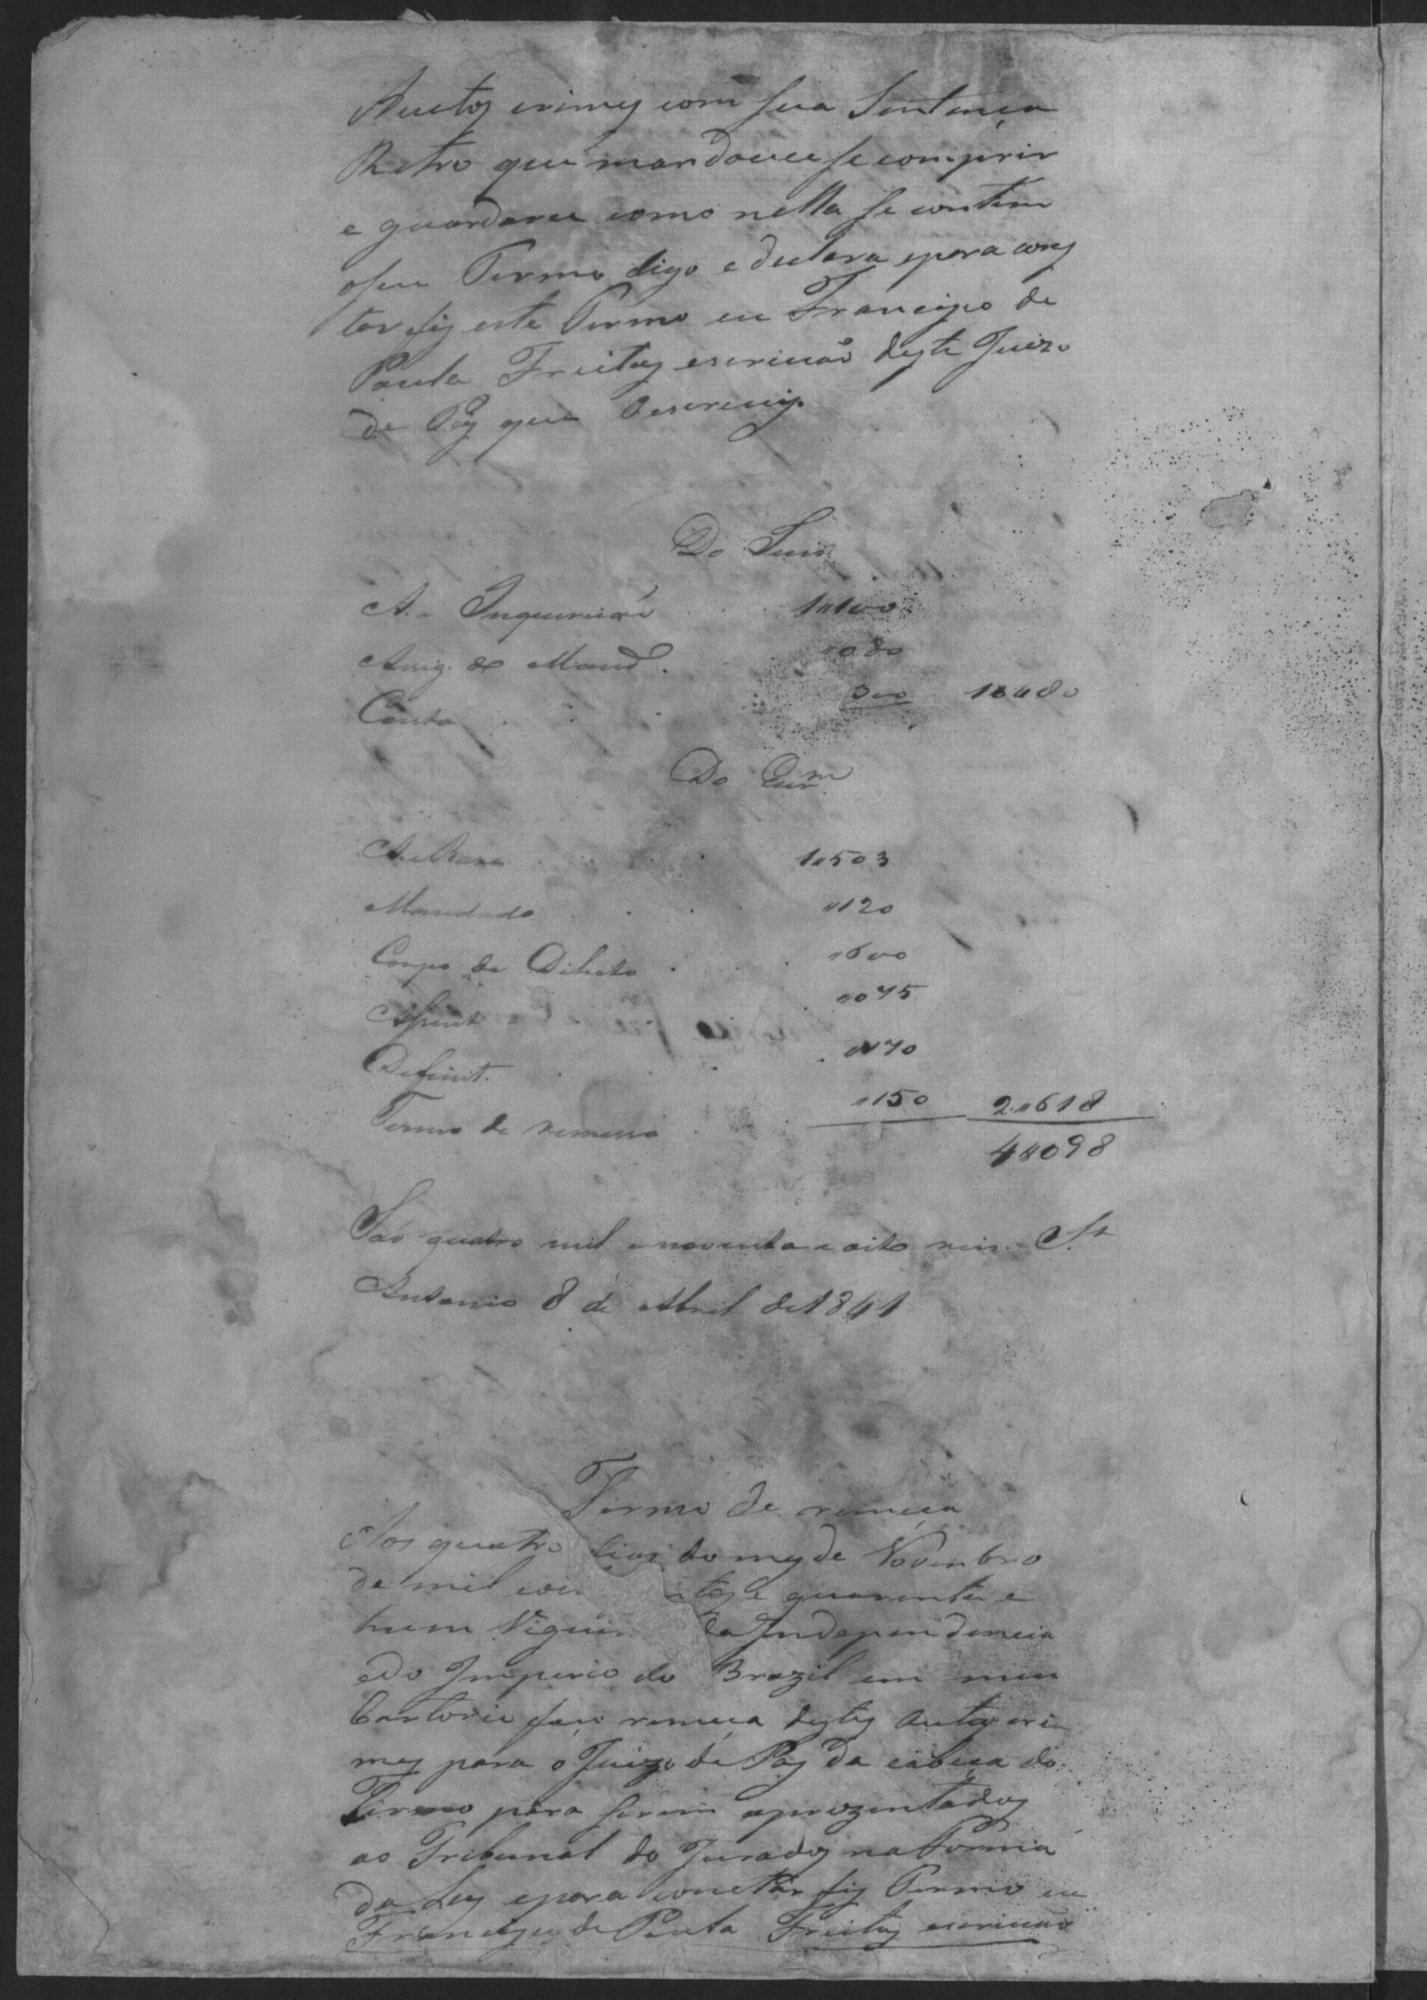 Auctos crimes com sua Sentença
Retro que mandou se comprir
e guardar como nella se contem
o seu Termo digo e declara epara cons
tar fis este Termo eu Francisco de
Paula Freitas escrivaõ deste Juizo
de Pas que Oescrevi
Do Juis
A. Inquiricaõ 1"100
Assig. de Mand. "080
Conta 300 1"480
Do Escr.m
Autuau 1"503
Mandado "120
Corpo de Dilicto "600
Assent. "075
Definit. "170
Termo de remessa "150 2"618
4"098
Saõ quatro mil e noventa e oito reis. S.to
Antonio 8 de Abril de 1841
Termo de remeca
Aos quatro dias do mes de Novembro
de mil e quarenta e
hum Vigui da Independencia
e do Imperio do Brazil em meu
Cartorio faço remeca destes Autos cri
mes para o Juizo de Pas da cabeça do
Termo para serem aprezentados
ao Tribunal do Jurados na Forma
da Ley epara constar fis Termo eu
Francisco de Paula Freitas escrivaõ